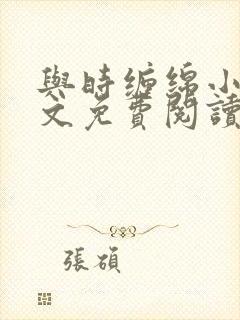 與時缠綿小
文免費閱讀
張碩